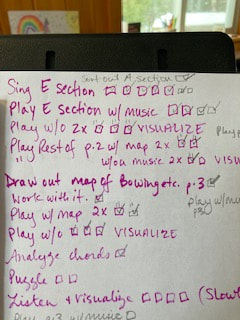 Sort out A section ☑
Sing E section ☑ ☑ ☑ ☑ ☑ □
Play E section w/ music ☑ ☑ ☑ ☑
Play w/o 2x ☑ ☑ ☑ ☑ VISUALIZE
Play Rest of p.2 w/ map 2x ☑ ☑
" w/ou music 2x ☑ □ VISU
Draw out map of Bowing etc. p.3 ☑
Work with it. ☑
Play w/ map 2x ☑ ☑
Play w/ mu
p3
Play w/o ☑ ☑ ☑ VISUALIZE
Analyze chords ☑
Puzzle □ □
Listen + Visualize □ □ □ □ (Slow
Play p.3 w/music □